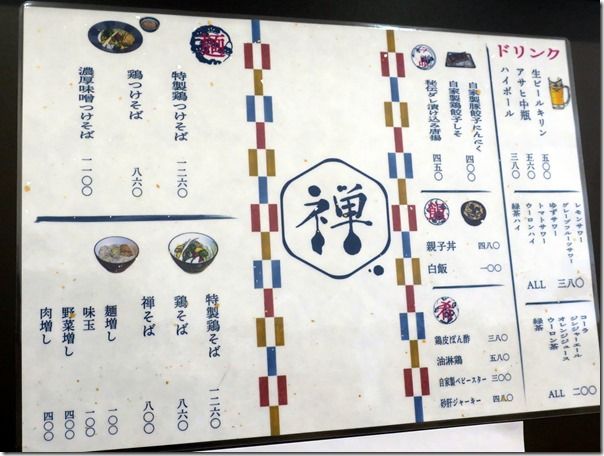 ドリンク
生ビールキリン 五〇〇
アサヒ中瓶 五六〇
ハイボール 三八〇
レモンサワー
グレープフルーツサワー
ゆずサワー
トマトサワー
ウーロンハイ
緑茶ハイ
ALL 三八〇
コーラ
ジンジャーエール
オレンジジュース
ウーロン茶
緑茶
ALL 二〇〇
自家製豚餃子にんにく
自家製鶏餃子しそ 四〇〇
秘伝ダレ漬け込み唐揚 四五〇
飯
親子丼 四八〇
白飯 一〇〇
鶏皮ぽん酢 三八〇
油淋鶏 五八〇
自家製ベビースター 三〇〇
砂肝ジャーキー 四八〇
禅
麺
特製鶏つけそば 一二六〇
鶏つけそば 八六〇
濃厚味噌つけそば 一一〇〇
特製鶏そば 一二六〇
鶏そば 八六〇
禅そば 八〇〇
麺増し 一〇〇
味玉 一〇〇
野菜増し 四〇〇
肉増し 四〇〇